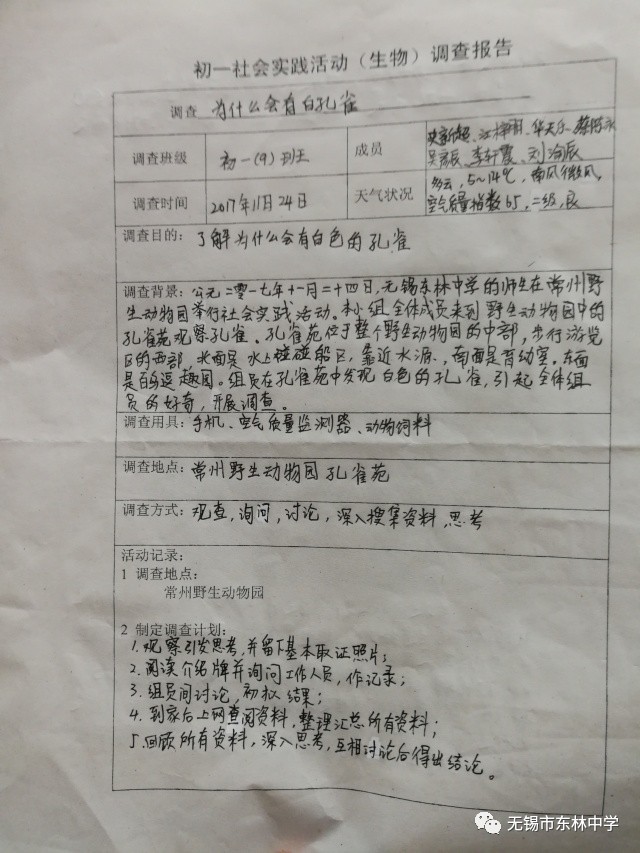 初一社会实践活动（生物）调查报告
调查 为什么会有白孔雀
调查班级 初一（9）班 成员
李轩震、刘洵辰
调查时间 2017年11月24日 天气状况 多云，5~14℃，南风微风，
空气质量指数65，二级，良
调查目的：了解为什么会有白色的孔雀
调查背景：公元二零一七年十一月二十四日，无锡东林中学的师生在常州野
生动物园举行社会实践活动。本小组全体成员来到野生动物园中的
孔雀苑观察孔雀。孔雀苑位于整个野生动物园的中部，步行游览
区的西部，北面是水上碰碰船区，靠近水源，南面是育幼室。东面
是百鸟逗趣园。组员在孔雀苑中发现白色的孔雀，引起全体组
员的好奇，开展调查。
调查用具：手机、空气质量监测器、动物饲料
调查地点：常州野生动物园孔雀苑
调查方式：观查，询问，讨论，深入搜集资料，思考
活动记录：
1 调查地点：
常州野生动物园
2 制定调查计划：
1.观察引发思考，并留下基本取证照片；
2.阅读介绍牌并询问工作人员，作记录；
3.组员间讨论，初拟结果；
4.到家后上网查阅资料，整理汇总所有资料；
5.回顾所有资料，深入思考，互相讨论后得出结论。
无锡市东林中学